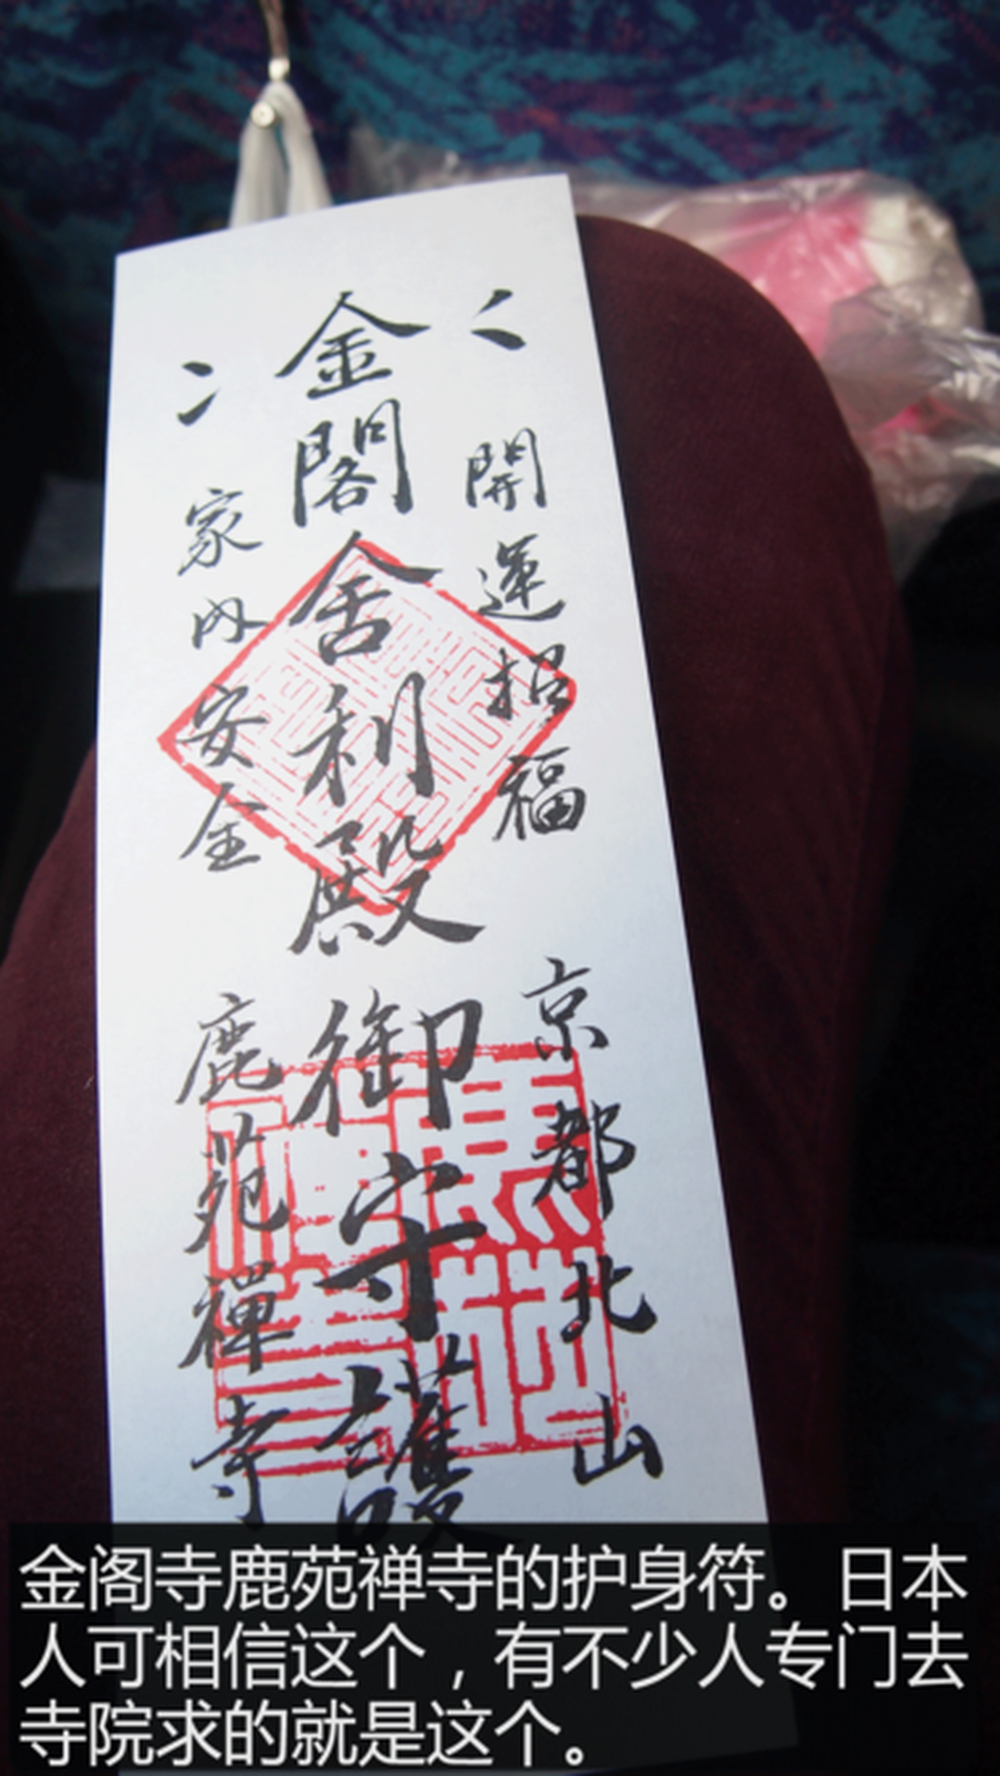 開運招福
京都北山
金閣舎利殿御守護
家内安全
鹿苑禅寺
金阁寺鹿苑禅寺的护身符。日本
人可相信这个，有不少人专门去
寺院求的就是这个。